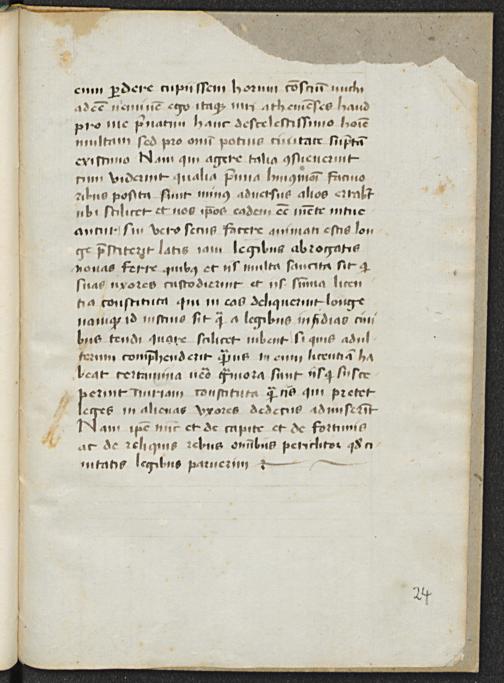 enim perdere cupiissem horum conscium michi
adesse neminem ego itaque viri athenienses haud
pro me privatim hanc de scelestissimo hoie
multam sed pro omni potius civitate suptam
existimo Nam qui agere talia consueverint
cum viderint qualia premia huiusmodi facino
ribus posita sunt minus adversus alios errabunt
ubi scilicet et vos ipsos eadem esse in mente intue
antur Sin vero secus facere animati estis lon
ge prestiterit latis iam legibus abrogatis
novas ferre quibus et iis multa sancita sit qui
suas uxores custodierint et iis summa licen
tia constituta qui in eas deliquerint longe
namque id iustius sit quam a legibus insidias civi
bus tendi quare scilicet iubent si quis adul
terum comprehenderit quamvis in eum licentiam ha
beat certamina vero graviora sunt iis qui susce
perint iniuriam constituta quam iis qui preter
leges in alienas uxores dedecus admiserint
Nam ipse nunc et de capite et de fortunis
ac de reliquis rebus omnibus periclitor quod ci
vitatis legibus paruerim
24